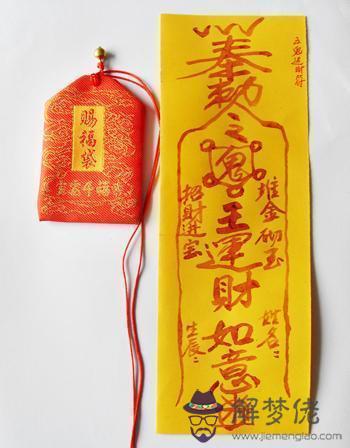 五鬼运财符
奉勅之鬼王運財如意
堆金砌玉
姓名:
招財进宝
生辰:
賜福袋
解梦佬
www.jiemenglao.com